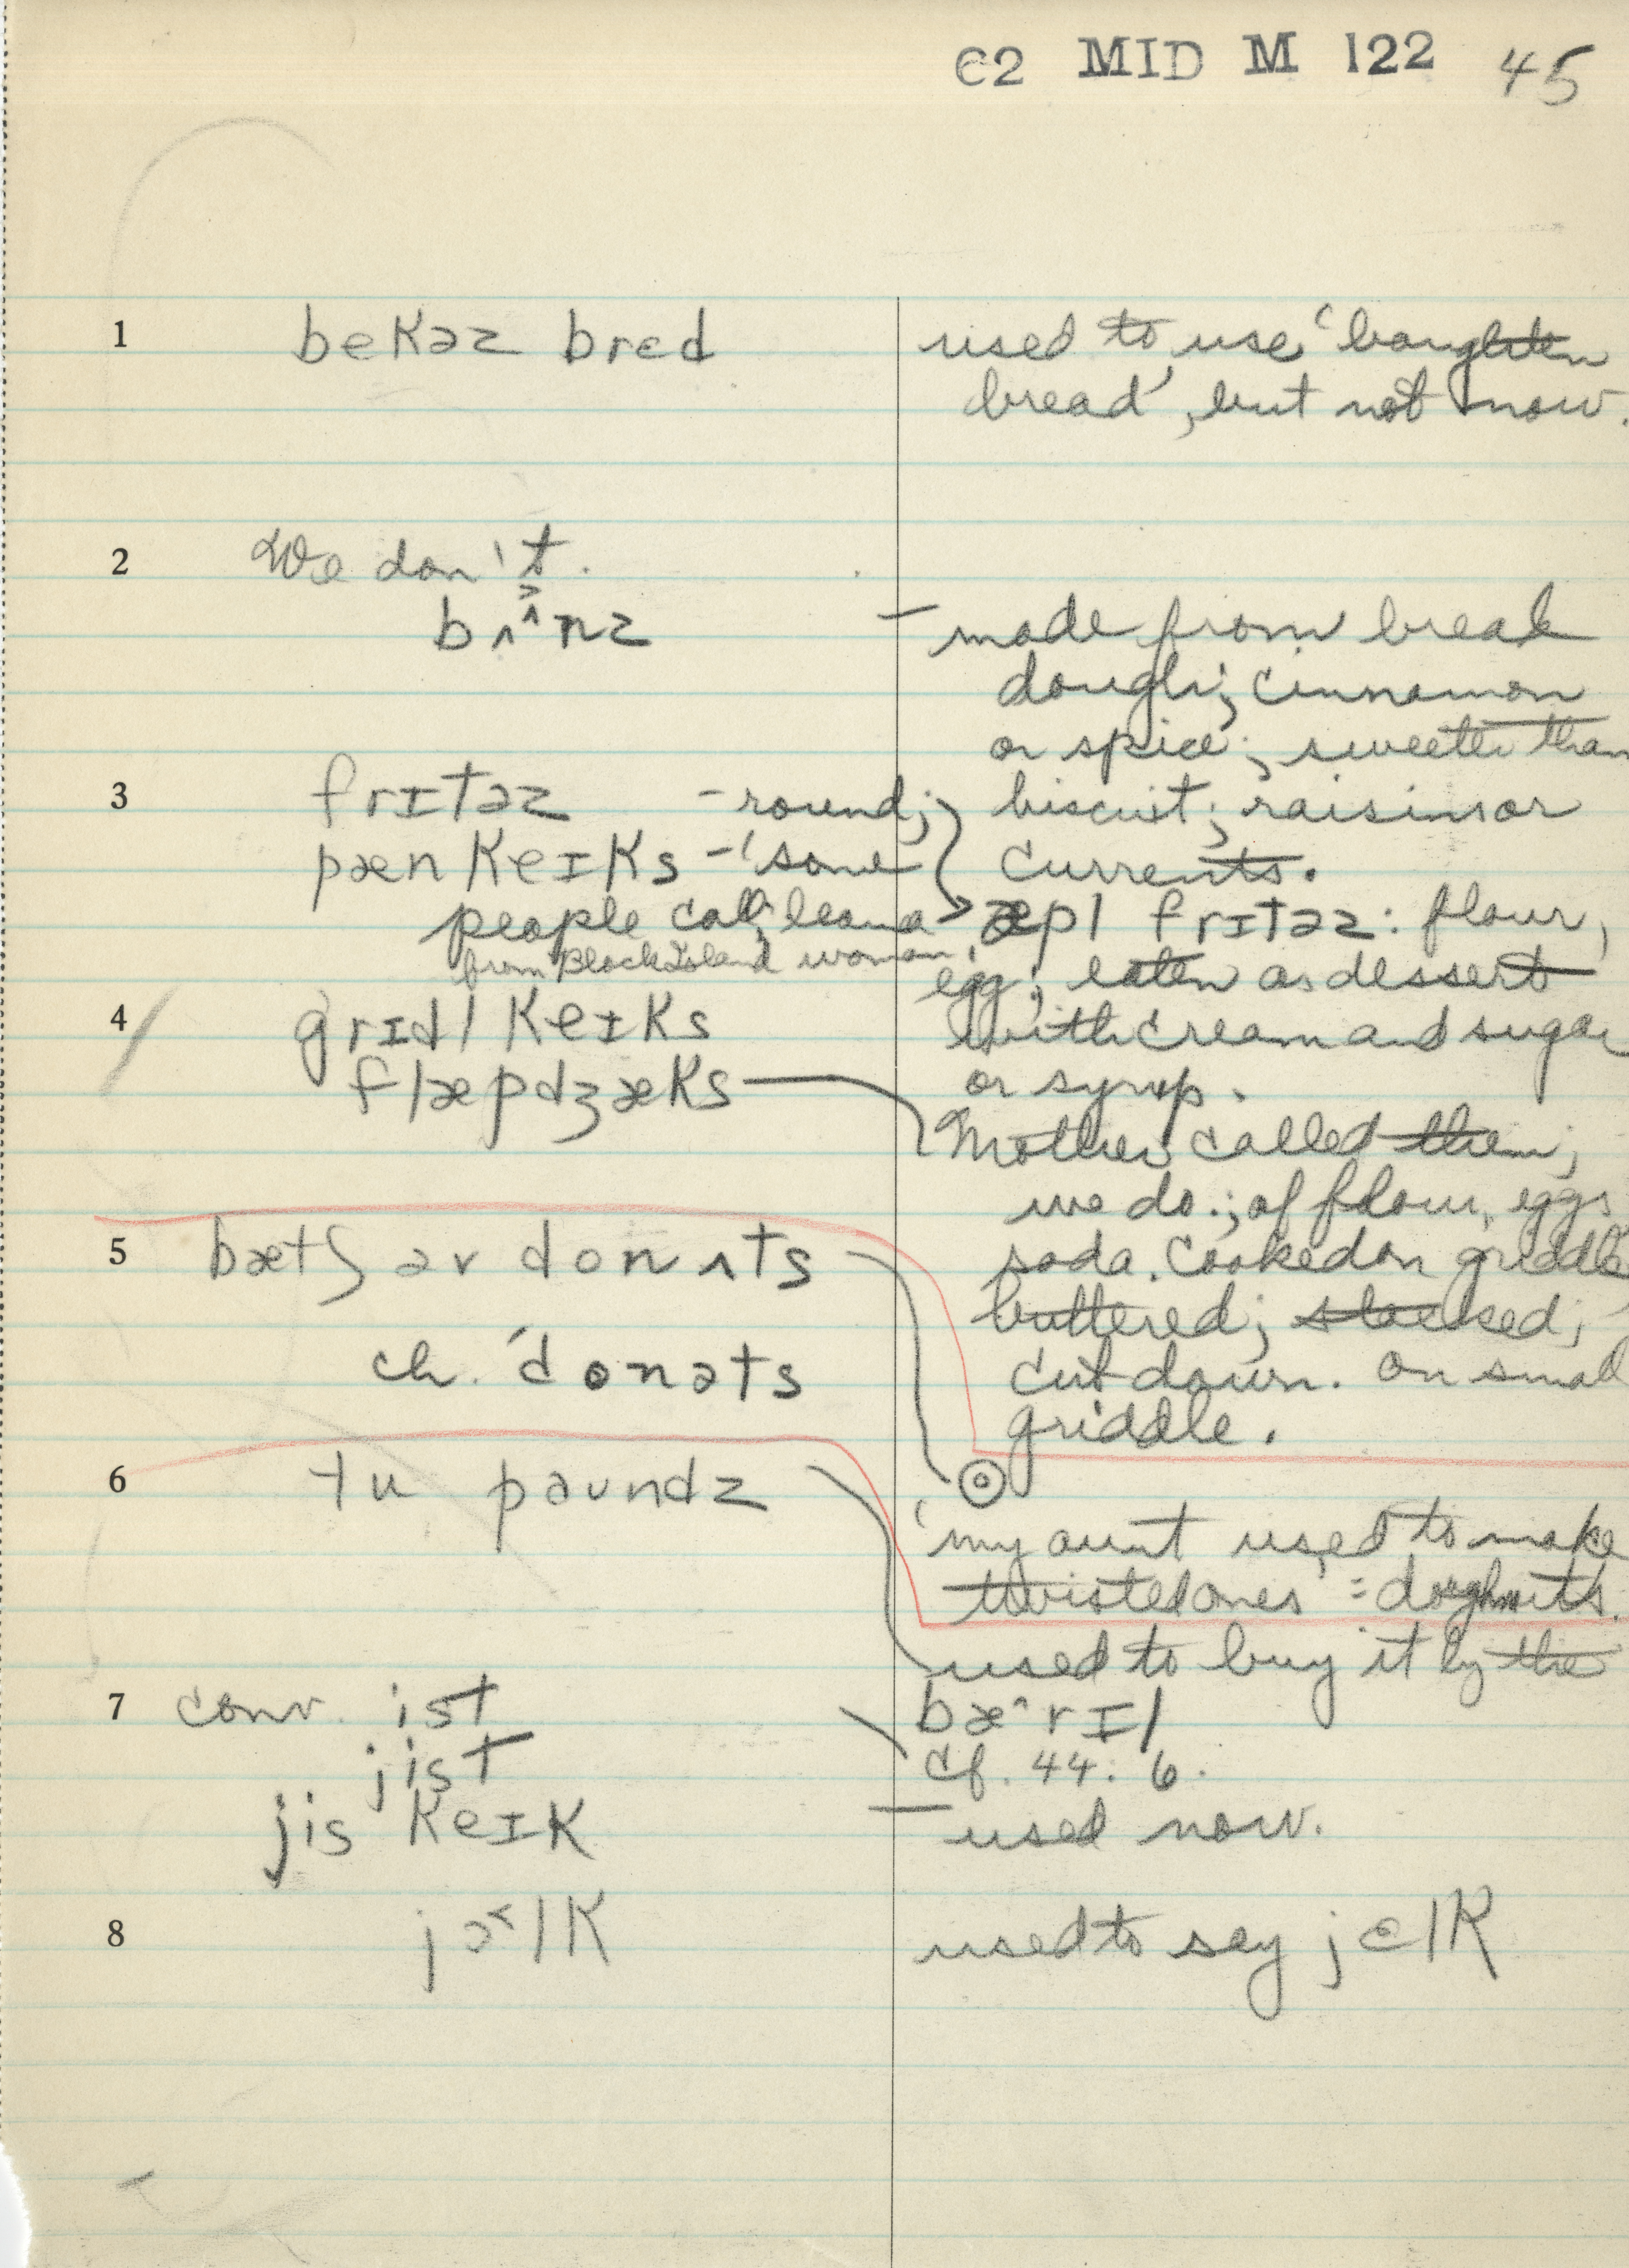 C2 MID M 122 45
1 bekəz bred
used to use 'boughten
bread', but not now.
2 We don't.
bʌ^nz
— made from bread
dough; cinnamon
or spice; sweeter than
biscuit; raisins or
currents.
3 frɪtəz - round;
pæn keɪks - 'some
people call', learned
from Block Island woman;
æpl frɪtəz: flour,
egg; eaten as dessert
with cream and sugar
or syrup.
4 grɪdl keɪks
flæpdʒæks
Mother called them;
we do.; of flour, eggs
soda. Cooked on griddle
buttered;
cut down. on small
griddle.
5 bætʃ əv donʌts
ch. 'donəts
'my aunt used to make
twisted ones' = doughnuts.
6 tu paundz
used to buy it by the
bæ^rɪl
cf. 44:6.
7 conv. ist
jist
jis keɪk
— used now.
8 jɔ˂lk
used to say jɛlk